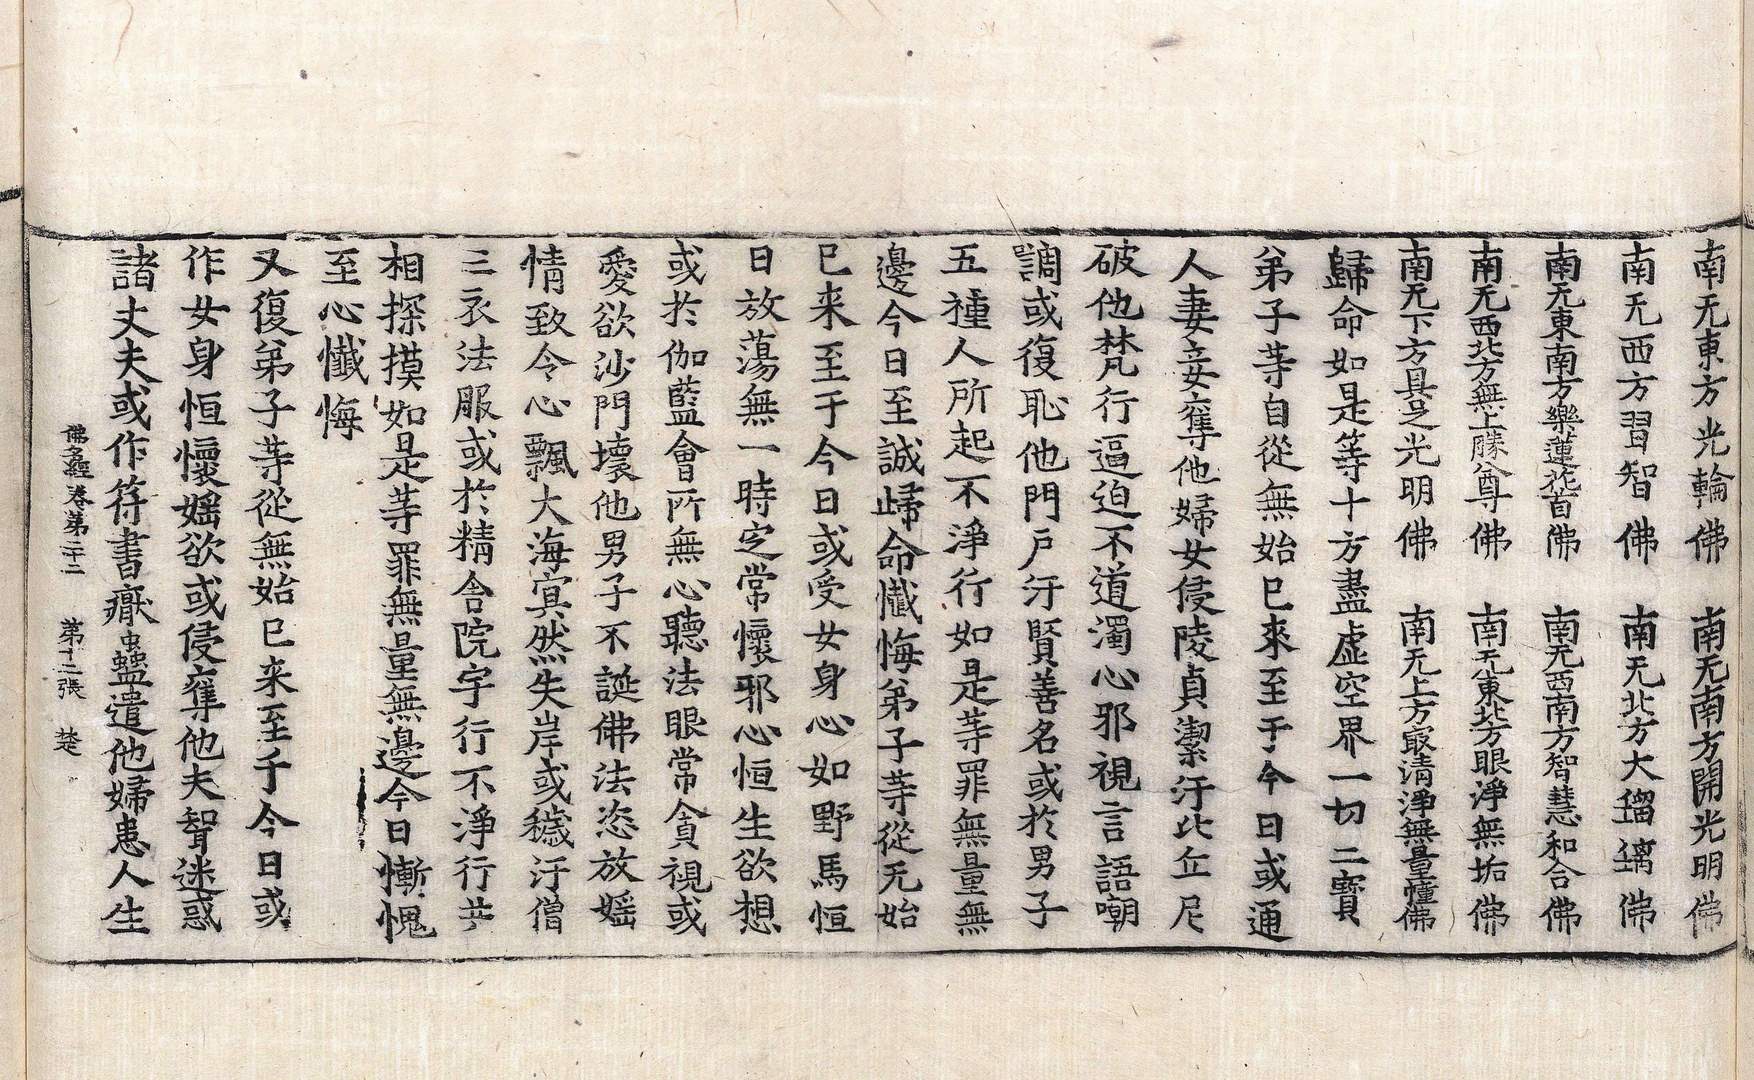 南无東方光輪佛　南无南方開光明佛
南无西方習智佛　南无北方大瑠璃佛
南无東南方樂蓮花首佛　南无西南方智慧和合佛
南无西北方無上勝尊佛　南无東北方眼淨無垢佛
南无下方具足光明佛　南无上方㝡清淨無量幢佛
歸命如是等十方盡虛空界一切三寶
弟子䓁自從無始已來至于今日或通
人妻妾奪他婦女侵陵貞潔汙比丘尼
破他梵行逼迫不道濁心邪視言語嘲
調或復恥他門戶汙賢善名或於男子
五種人所起不淨行如是䓁罪無量無
邊今日至誠歸命懺悔弟子䓁從无始
已来至于今日或受女身心如野馬恒
日放蕩無一時㝎常懷邪心恒生欲想
或於伽藍會所無心聽法眼常貪視或
愛欲沙門壞他男子不誕佛法恣放婬
情致令心飄大海㝠然失岸或穢汙僧
三衣法服或於精舍院宇行不淨行共
相探摸如是䓁罪無量無邊今日慚愧
至心懺悔
又復弟子䓁從無始已来至于今日或
作女身恒懷婬欲或侵奪他夫智迷惑
諸丈夫或作符書厭蠱遣他婦患人生
佛名經卷第二十二　第十二張　楚